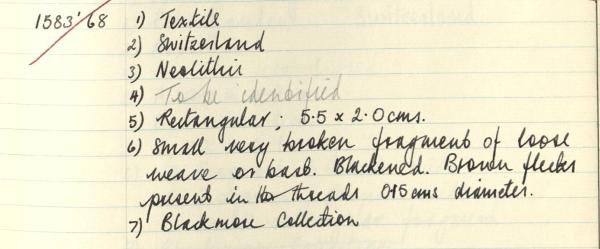 1583'68 1) Textile
2) Switzerland
3) Neolithic
4) To be identified
5) Rectangular; 5.5 x 2.0 cms.
6) Small very broken fragment of loose
weave or bast. Blackened. Brown flecks
present in threads 0.15 cms diameter.
7) Blackmore Collection